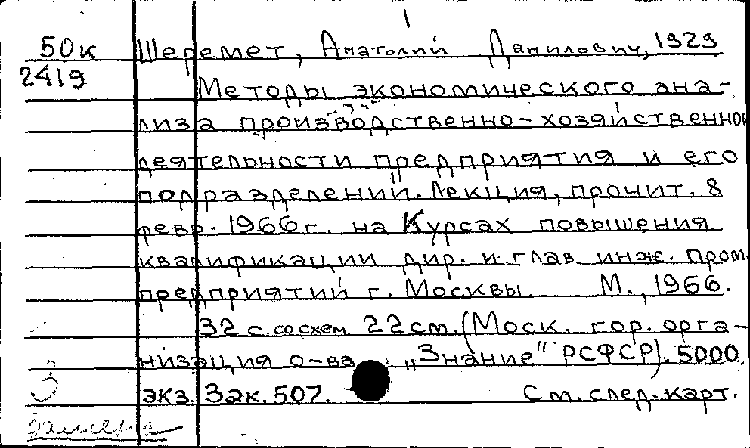 1
50к Шеремет, Анатолий Данилович, 1929
2419
Методы экономического ана-
лиза производственно-хозяйственной
деятельности предприятия и его
подразделений. Лекция, прочит. 8
февр. 1966 г. на Курсах повышения
квалификации дир. и глав. инж. пром.
предприятий г. Москвы. М., 1966.
32 с. со схем. 22 см. (Моск. гор. орга-
низация о-ва „Знание" РСФСР). 5000
экз. Зак. 507. См. след. карт.